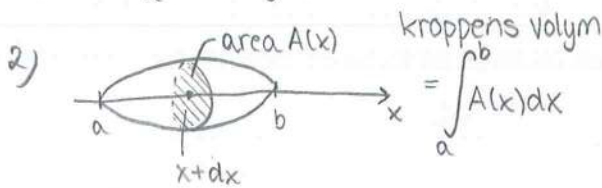 2)
area A(x)
kroppens volym
= ∫_a^b A(x)dx
a
b
x
x+dx